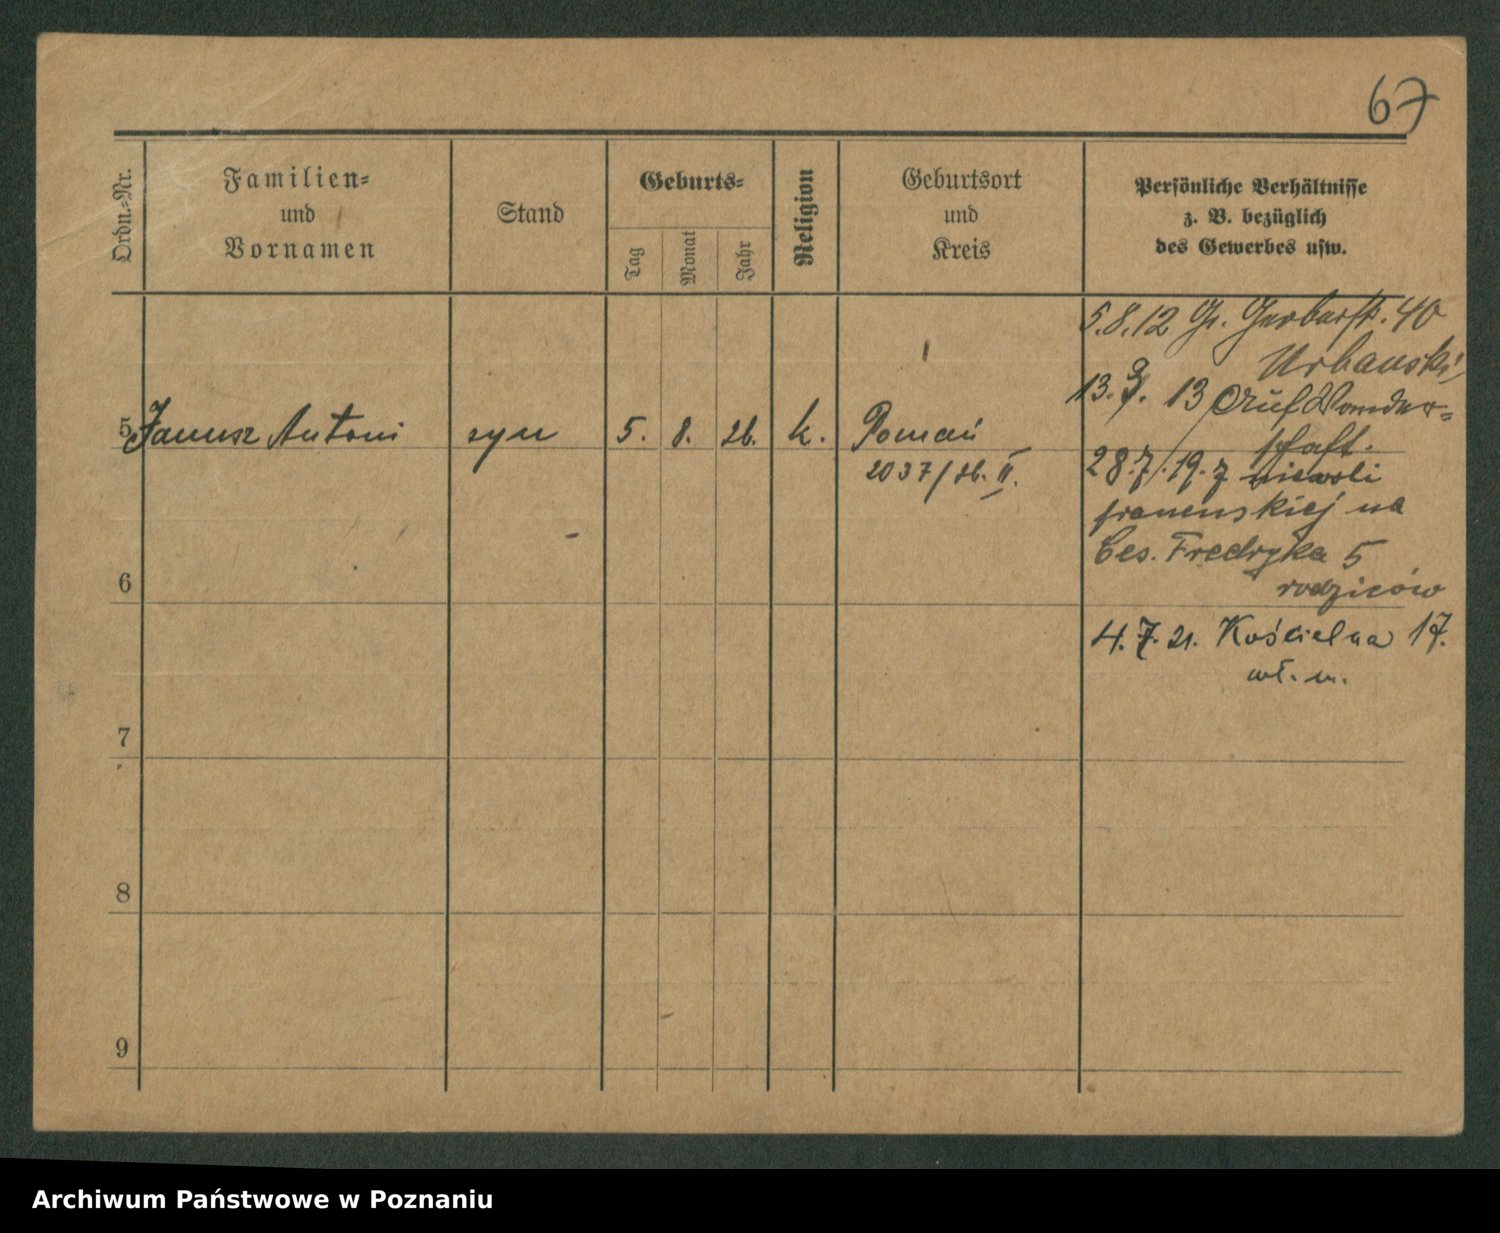 67
Ordn.-Nr.
Familien-
und
Vornamen
Stand
Geburts-
Tag
Monat
Jahr
Religion
Geburtsort
und
Kreis
Persönliche Verhältnisse
z. B. bezüglich
des Gewerbes usw.
5.8.12 Gr. Gerberstr. 40
Urbanski,
13. 9. 13 Auf Wander=
schaft.
5 Janusz Antoni syn 5. 8. 26. k. Poznań
2037/26. II.
28.7.19. z niewoli
francuskiej na
Ces. Fredryka 5
rodziców
6
4.7.21. Kościelna 17.
wł. m.
7
8
9
Archiwum Państwowe w Poznaniu